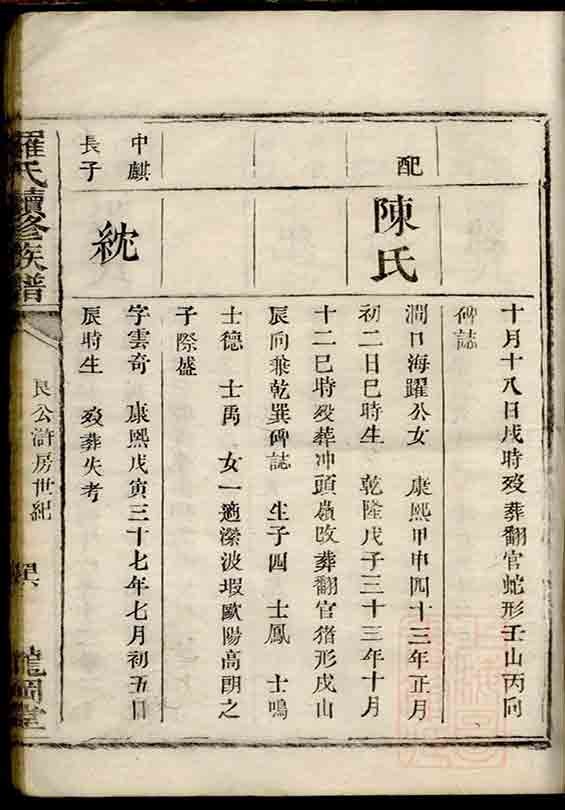 十月十八日戌時歿葬翻官蛇形壬山丙向
碑誌
配
陳氏
澗口海躍公女 康熙甲申四十三年正月
初二日巳時生 乾隆戊子三十三年十月
十二巳時歿葬冲頭嶺改葬翻官猪形戌山
辰向兼乾巽碑誌 生子四 士鳳 士鳴
士德 士禹 女一適瀠波塅歐陽高朗之
子際盛
中麒
長子
統
字雲奇 康熙戊寅三十七年七月初五日
辰時生 歿葬失考
羅氏續修族譜
良公滸房世紀
巽 龍岡堂